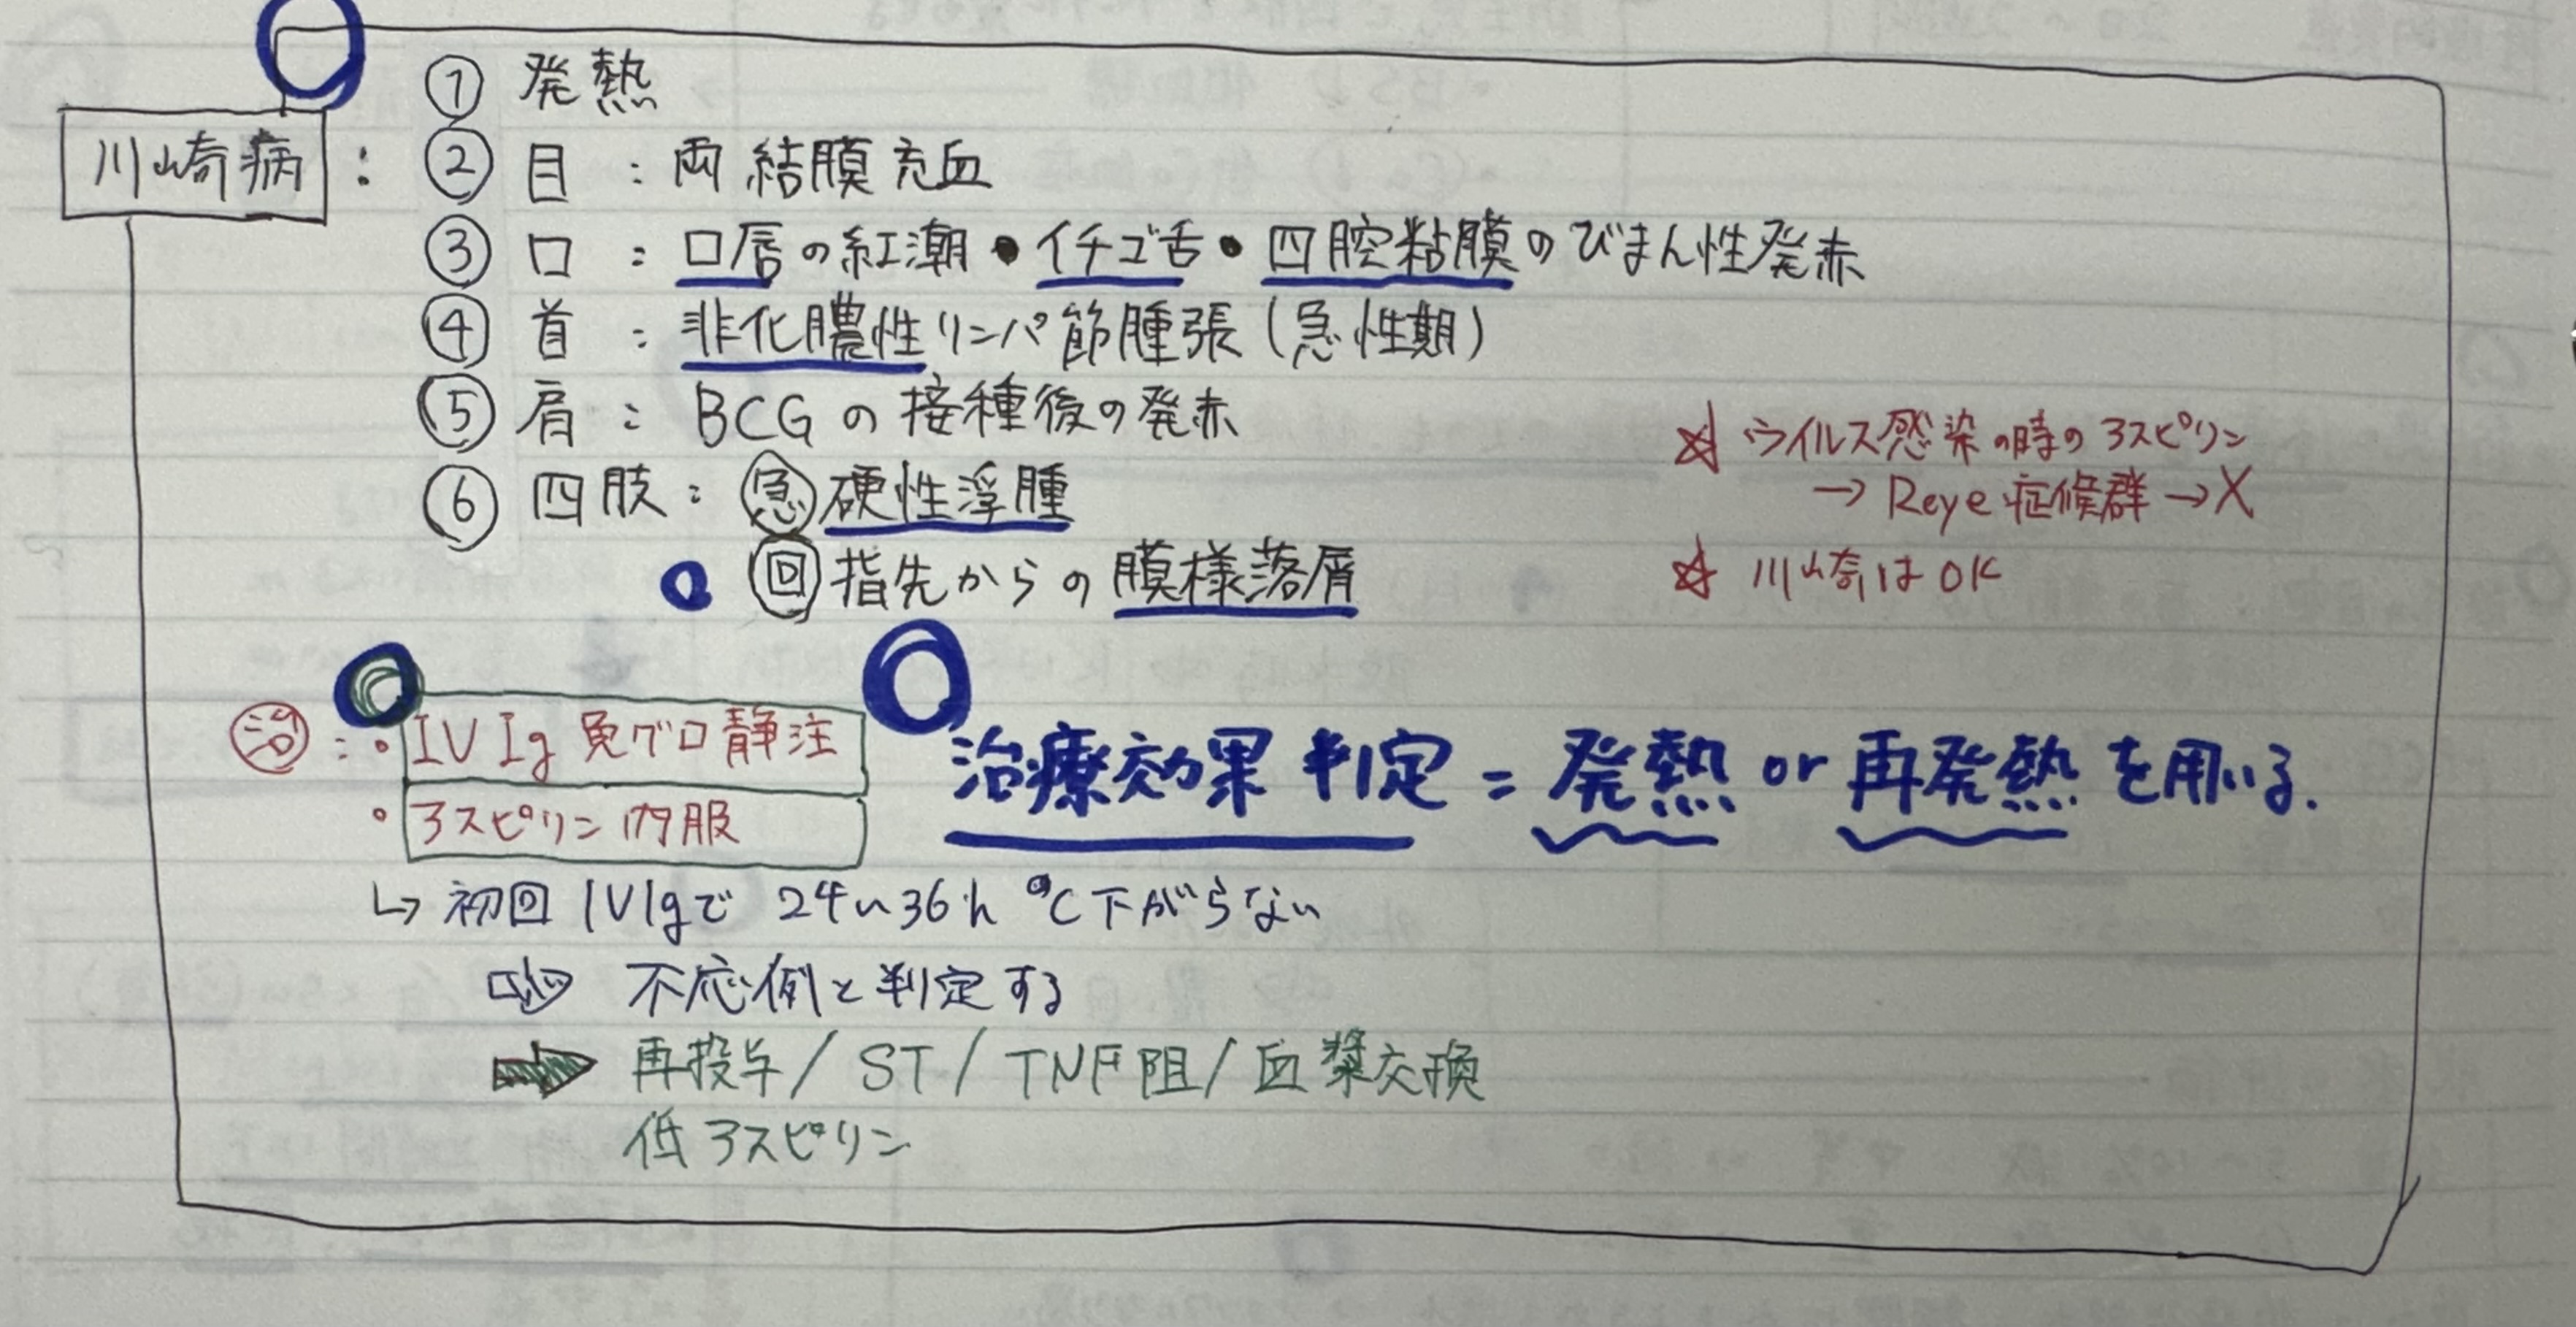 ① 発熱
川崎病 : ② 目 : 両結膜充血
③ 口 : 口唇の紅潮・イチゴ舌・四腔粘膜のびまん性発赤
④ 首 : 非化膿性リンパ節腫張(急性期)
⑤ 肩 : BCGの接種後の発赤
⑥ 四肢 : 急 硬性浮腫
回 指先からの膜様落屑
☆ ウイルス感染の時のアスピリン
→ Reye症候群 → X
☆ 川崎はOK
治 : ・IVIg 免グロ静注
・アスピリン内服
治療効果判定 = 発熱 or 再発熱を用いる.
↳ 初回IVIgで 24〜36h ℃下がらない
⇨ 不応例と判定する
➡ 再投与/ST/TNF阻/血漿交換
低アスピリン